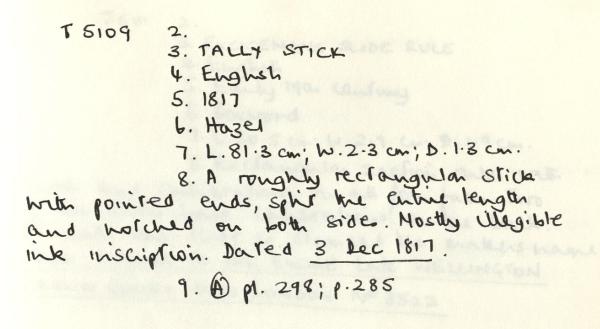 T 5109 2.
3. TALLY STICK
4. English
5. 1817
6. Hazel
7. L. 81·3 cm; W. 2·3 cm; D. 1·3 cm.
8. A roughly rectangular stick
with pointed ends, split the entire length
and notched on both sides. Mostly illegible
ink inscription. Dated 3 Dec 1817.
9. Ⓐ pl. 298; p. 285